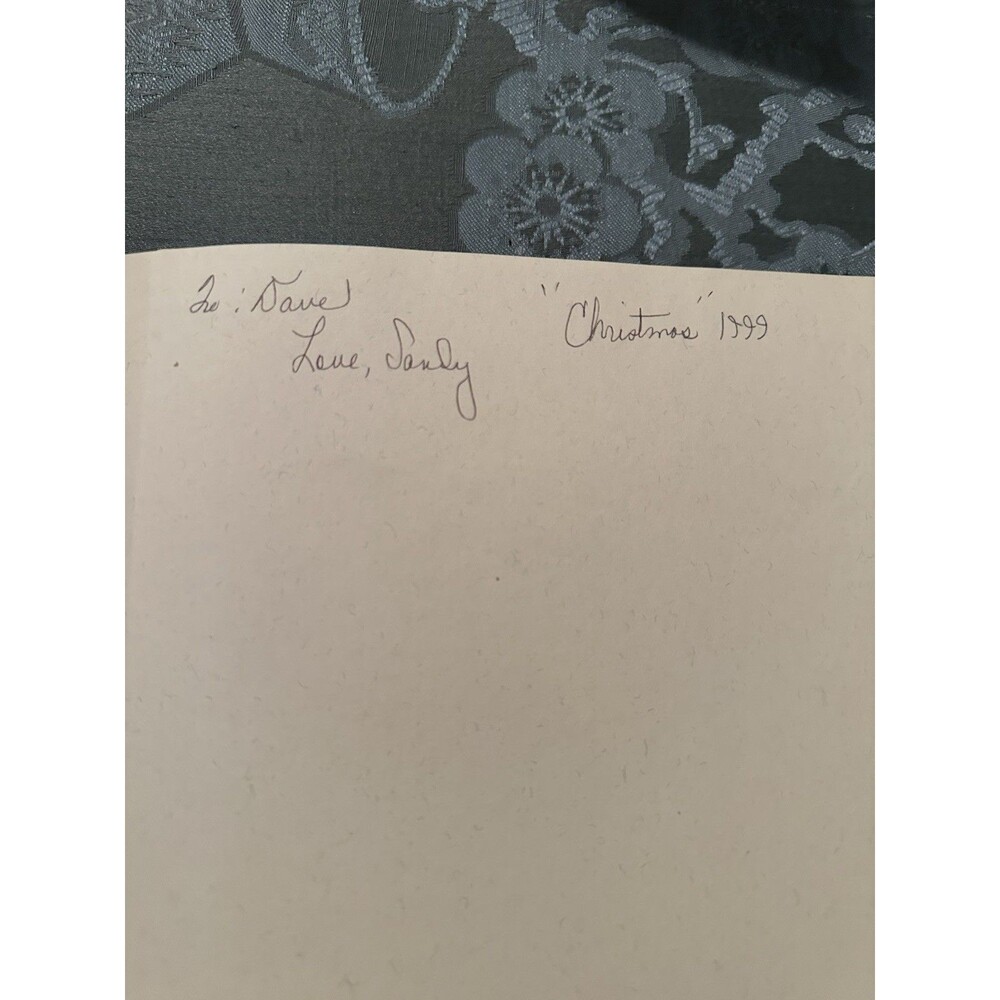 To: Dave
Love, Sandy
"Christmas" 1999